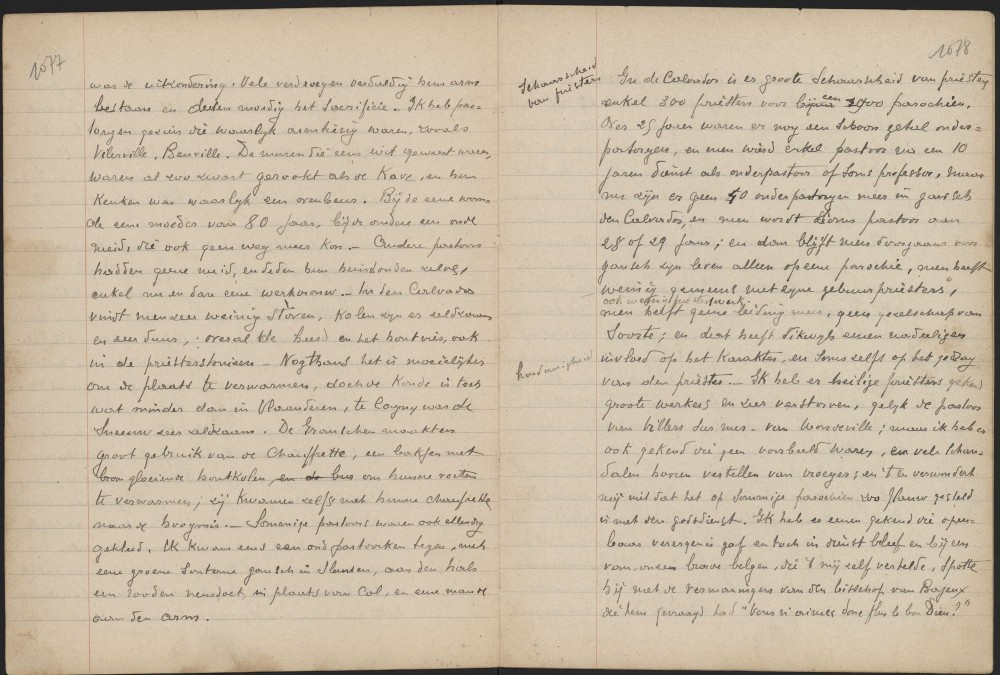 1077
was de uitzondering. Vele verdroegen verduldig hun arm
bestaan en deden moedig het Sacrificie. Ik heb pas-
torijen gezien die waarlijk armtierig waren, zooals
Vilerville, Benville. De muren die eens wit geweest waren,
waren al zoo zwart gerookt als de Kave, en hun
Keuken was waarlijk een ovenbeur. Bij de eene woonde
de eene moeder van 80 jaar, bij de andere een oude
meid, die ook geen weg meer kon. Andere pastoors
hadden geene meid, en deden hun huishouden zelve,
enkel nu en dan eene werkvrouw. In den Calvados
vindt men zeer weinig stoven, Kolen zijn er zeldzaam
en zeer duur, overal de heerd en het houtvier, ook
in de priestershuizen. Nogthans het is moeielijker
om de plaats te verwarmen, doch de Koude is toch
wat minder dan in Vlaanderen, te Cagny was de
Sneeuw zeer zeldzaam. De Franschen maakten
groot gebruik van de Chauffrette, een bakske met
gloeiende houtkolen, om hunne voeten
te verwarmen; zij kwamen zelfs met hunne chauffrette
naar de hoogmis. Sommige pastoors waren ook ellendig
gekleed. Ik kwam eens een oud pastoorken tegen, met
eene groene Soutane gansch in slunsen, aan den hals
een rooden neusdoek, in plaats van Col, en eene mande
aan den arm.
1078
Schaarscheid
van priesters
In de Calvados is er groote Schaarscheid van priesters
enkel 300 priesters voor parochien.
Over 25 jaren waren er nog een schoon getal onder-
pastorijen, en men wierd enkel pastoor na een 10
jaren dienst als onderpastoor of soms professor, maar
nu zijn er geen 40 onderpastorijen meer in gansch
den Calvados, en men wordt soms pastoor aan
28 of 29 jaar; en dan blijft men doorgaans voor
gansch zijn leven alleen op eene parochie, men heeft
weinig gemeens met zijne gebuurpriesters,
ook weinig werk
men heeft geene leiding meer, geen gezelschap van
Soorte; en dat heeft dikwijls eenen nadeeligen
invloed op het Karakter, en soms zelfs op het gedrag
hoedanigheid
van den priester. Ik heb er heilige priesters gekend
groote werkers en zeer verstorven, gelijk de pastoor
van Villers sur mer, van Vonvoeville; maar ik heb er
ook gekend die geen voorbeeld waren, en vele schan-
dalen hooren vertellen van vroeger; en 't en verwondert
mij niet dat het op sommige parochien zoo flauw gesteld
is met den godsdienst. Ik heb er eenen gekend die open-
baar verergenis gaf en toch in dienst bleef en bij een
van onzen brave belgen, die 't mij zelf vertelde, spotte
hij met de vermaningen van den bisschop van Bayeux
die hem gevraagd had "Vous n'aimez donc plus le bon Dieu?"